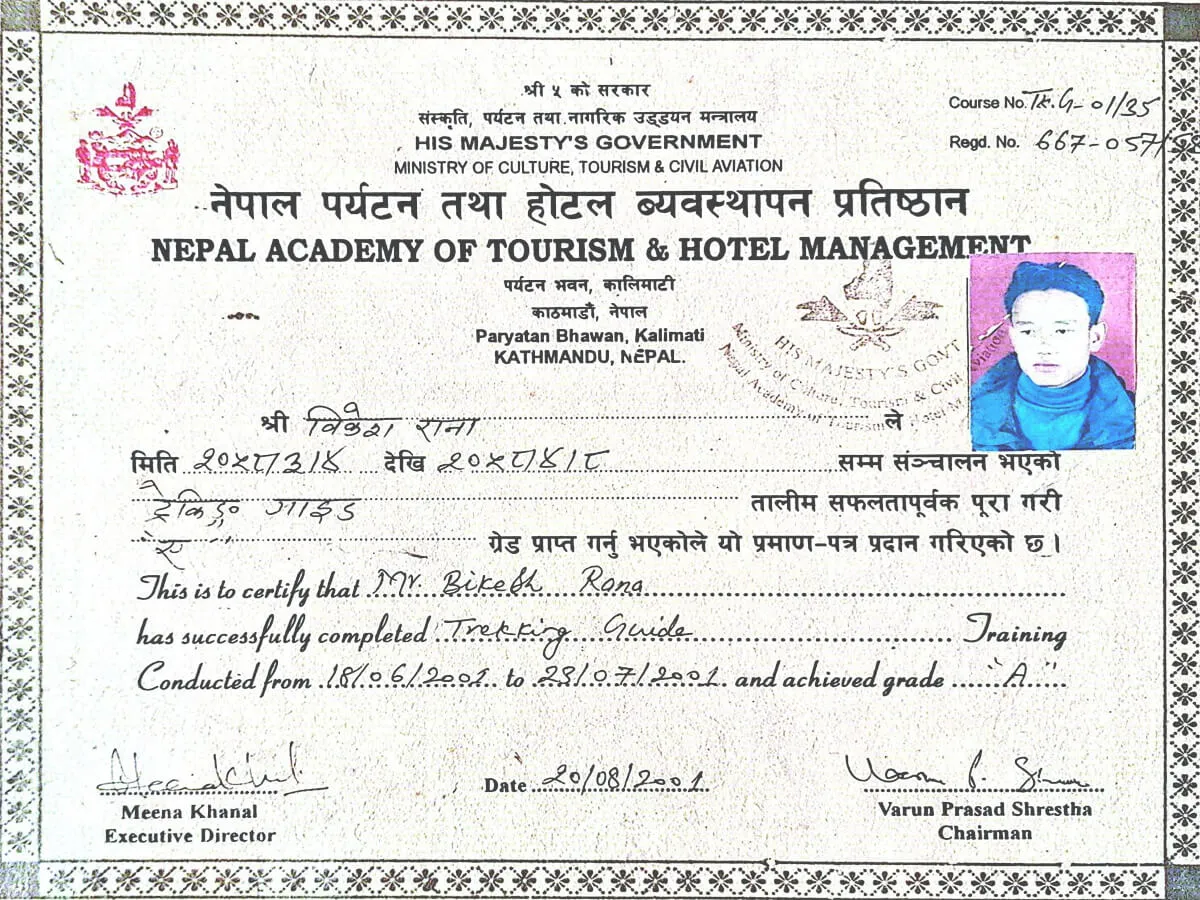 श्री ५ को सरकार
संस्कृति, पर्यटन तथा नागरिक उड्डयन मन्त्रालय
HIS MAJESTY'S GOVERNMENT
MINISTRY OF CULTURE, TOURISM & CIVIL AVIATION
Course No. Tk.G-01/35
Regd. No. 667-057/
नेपाल पर्यटन तथा होटल ब्यवस्थापन प्रतिष्ठान
NEPAL ACADEMY OF TOURISM & HOTEL MANAGEMENT
पर्यटन भवन, कालिमाटी
काठमाडौं, नेपाल
Paryatan Bhawan, Kalimati
KATHMANDU, NEPAL.
HIS MAJESTY'S GOVT
Ministry of Culture, Tourism & Civil Aviation
Nepal Academy of Tourism & Hotel M
श्री विकेश राना ले
मिति २०५८/३/४ देखि २०५८/४/८ सम्म संञ्चालन भएको
ट्रेकिङ्ग गाइड तालीम सफलतापूर्वक पूरा गरी
ए ग्रेड प्राप्त गर्नु भएकोले यो प्रमाण-पत्र प्रदान गरिएको छ।
This is to certify that Mr. Bikesh Rana
has successfully completed Trekking Guide Training
Conducted from 18/06/2001 to 23/07/2001 and achieved grade "A"
Date 20/08/2001
Meena Khanal
Executive Director
Varun Prasad Shrestha
Chairman